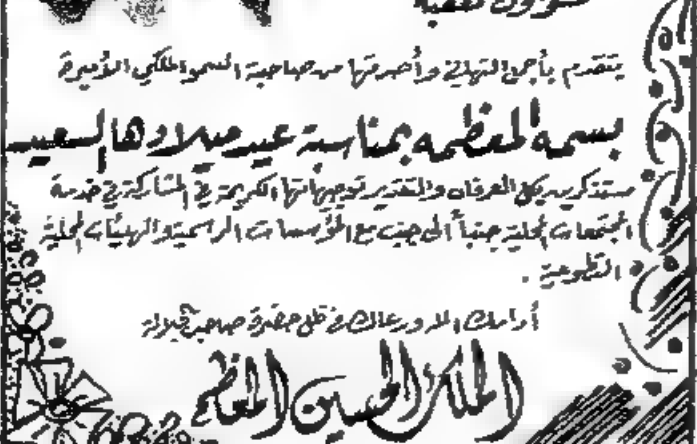 يتقدم بأجمل التهاني وأصدقها من صاحبة السمو الملكي الأميرة
بسمه المعظمه بمناسبة عيد ميلادها السعيد
مستذكرين بكل العرفان والتقدير توجيهاتها الكريمة في المشاركة في خدمة
المجتمعات المحلية جنباً الى جنب مع المؤسسات الرسمية والهيئات المحلية
التطوعية .
أدامك الله ورعاك في ظل حضرة صاحب الجلالة
الملك الحسين المعظم